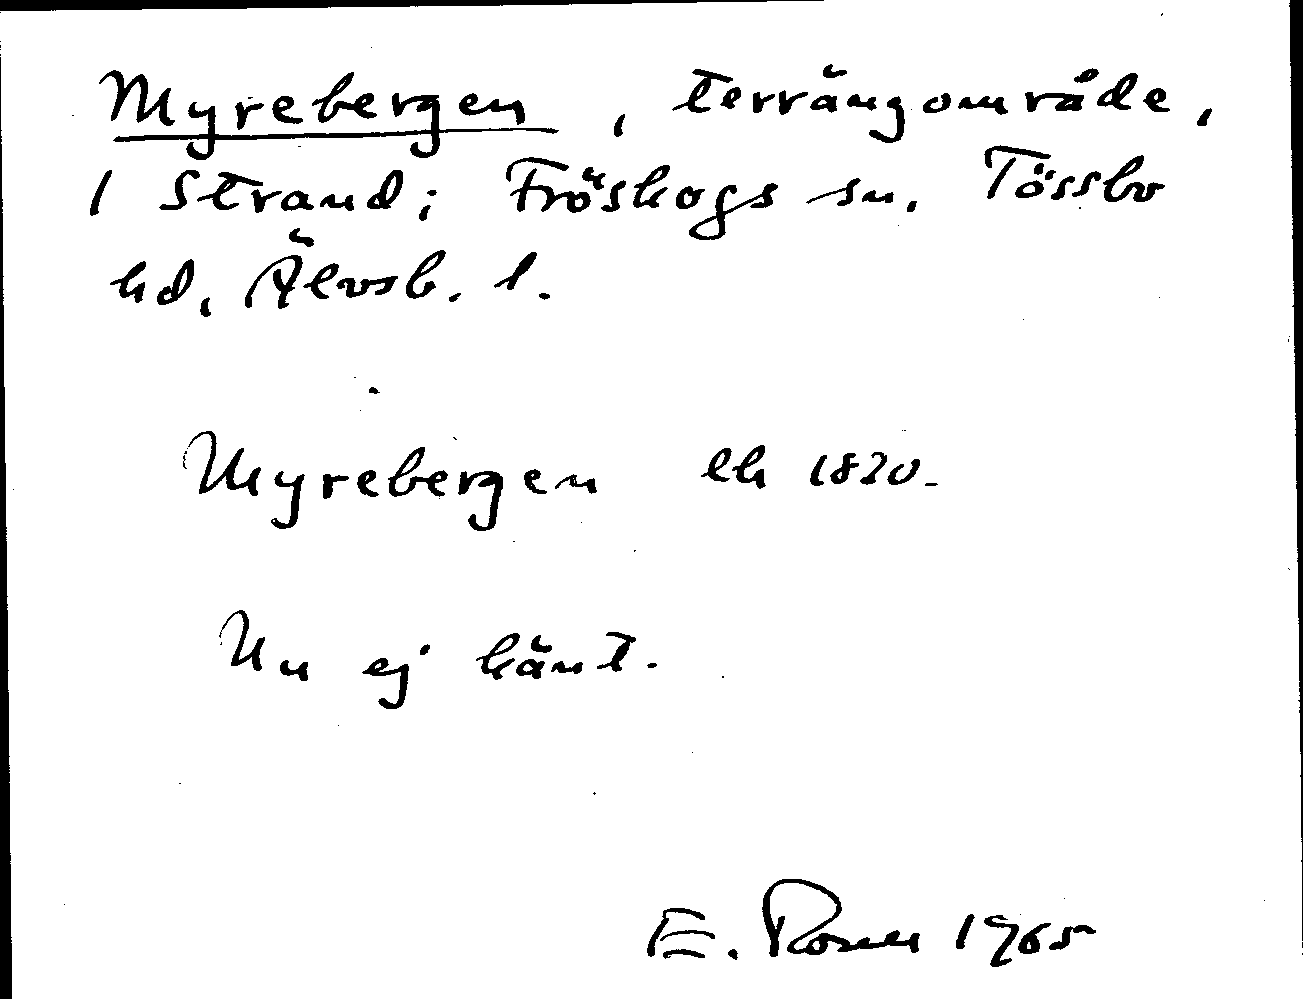 Myrebergen, terrängområde,
1 Strand; Fröskogs sn. Tössbo
hd, Älvsb. l.
Myrebergen lh 1820.
Nu ej känt.
E. Rosen 1965